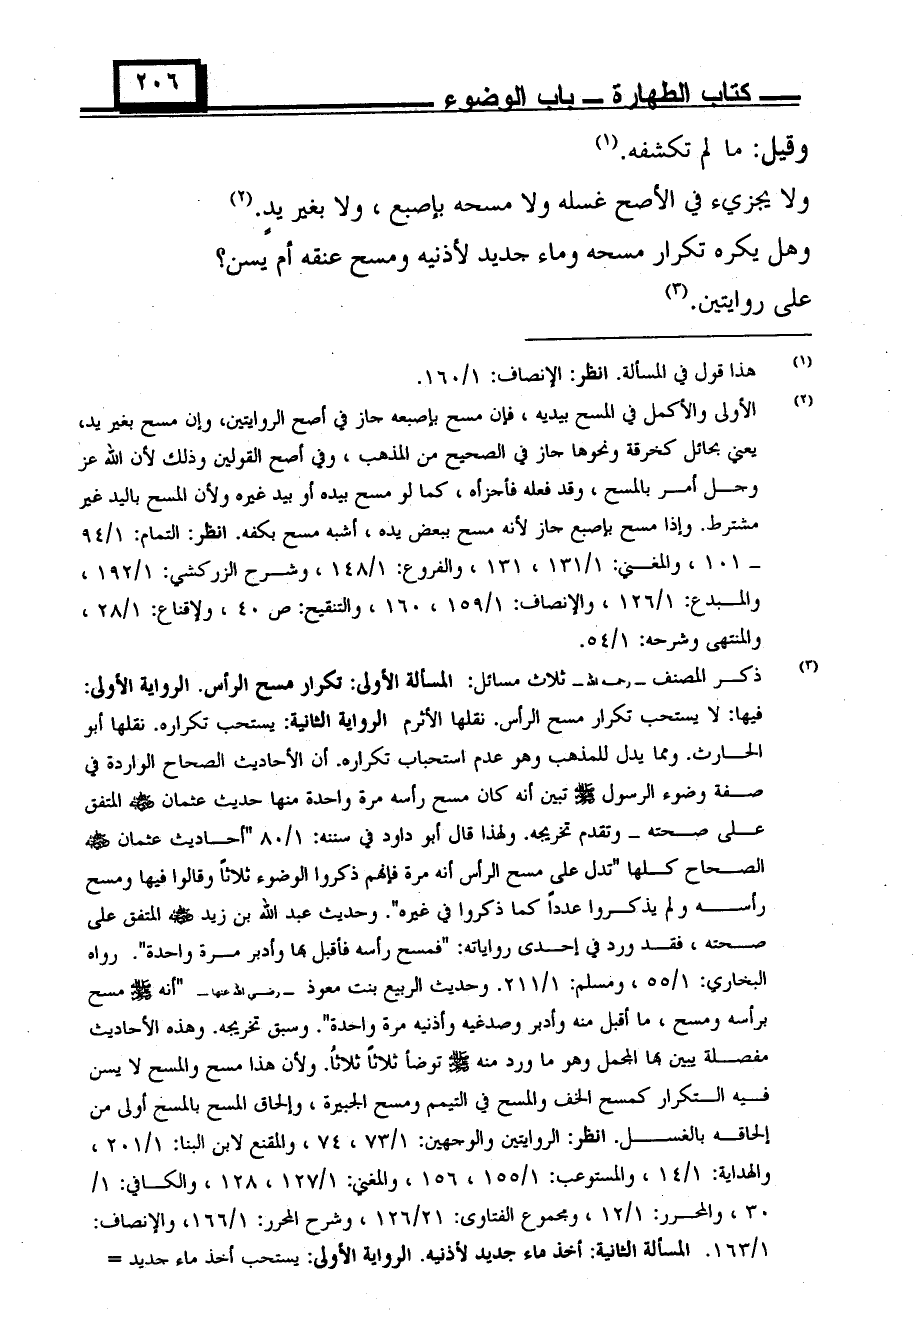 كتاب الطهارة ـ باب الوضوء
٢٠٦
وقيل: ما لم تكشفه.(١)
ولا يجزيء في الأصح غسله ولا مسحه بإصبع ، ولا بغير يدٍ.(٢)
وهل يكره تكرار مسحه وماء جديد لأذنيه ومسح عنقه أم يسن؟
على روايتين.(٣)
(١) هذا قول في المسألة. انظر: الإنصاف: ١٦٠/١.
(٢) الأولى والأكمل في المسح بيديه ، فإن مسح بإصبعه جاز في أصح الروايتين، وإن مسح بغير يد،
يعني بحائل كخرقة ونحوها جاز في الصحيح من المذهب ، وفي أصح القولين وذلك لأن الله عز
وجل أمر بالمسح ، وقد فعله فأجزأه ، كما لو مسح بيده أو بيد غيره ولأن المسح باليد غير
مشترط. وإذا مسح بإصبع جاز لأنه مسح ببعض يده ، أشبه مسح بكفه. انظر: التمام: ٩٤/١
ـ ١٠١ ، والمغني: ١٣١/١ ، ١٣١ ، والفروع: ١٤٨/١ ، وشرح الزركشي: ١٩٢/١ ،
والمبدع: ١٢٦/١ ، والإنصاف: ١٥٩/١ ، ١٦٠ ، والتنقيح: ص ٤٠ ، ولإقناع: ٢٨/١ ،
والمنتهى وشرحه: ٥٤/١.
(٣) ذكر المصنف ـ رحمه الله ـ ثلاث مسائل: المسألة الأولى: تكرار مسح الرأس. الرواية الأولى:
فيها: لا يستحب تكرار مسح الرأس. نقلها الأثرم الرواية الثانية: يستحب تكراره. نقلها أبو
الحارث. ومما يدل للمذهب وهو عدم استحباب تكراره. أن الأحاديث الصحاح الواردة في
صفة وضوء الرسول ﷺ تبين أنه كان مسح رأسه مرة واحدة منها حديث عثمان ﵁ المتفق
على صحته ـ وتقدم تخريجه. ولهذا قال أبو داود في سننه: ٨٠/١ "أحاديث عثمان ﵁
الصحاح كلها "تدل على مسح الرأس أنه مرة فإنهم ذكروا الوضوء ثلاثاً وقالوا فيها ومسح
رأسه ولم يذكروا عدداً كما ذكروا في غيره". وحديث عبد الله بن زيد ﵁ المتفق على
صحته ، فقد ورد في إحدى رواياته: "فمسح رأسه فأقبل بها وأدبر مرة واحدة". رواه
البخاري: ٥٥/١ ، ومسلم: ٢١١/١. وحديث الربيع بنت معوذ ـ رضي الله عنها ـ "أنه ﷺ مسح
برأسه ومسح ، ما أقبل منه وأدبر وصدغيه وأذنيه مرة واحدة". وسبق تخريجه. وهذه الأحاديث
مفصلة يبين بها المجمل وهو ما ورد منه ﷺ توضأ ثلاثاً ثلاثاً. ولأن هذا مسح والمسح لا يسن
فيه التكرار كمسح الخف والمسح في التيمم ومسح الجبيرة ، وإلحاق المسح بالمسح أولى من
إلحاقه بالغسل. انظر: الروايتين والوجهين: ٧٣/١ ، ٧٤ ، والمقنع لابن البنا: ٢٠١/١ ،
والهداية: ١٤/١ ، والمستوعب: ١٥٥/١ ، ١٥٦ ، والمغني: ١٢٧/١ ، ١٢٨ ، والكافي: ١/
٣٠ ، والمحرر: ١٢/١ ، ومجموع الفتاوى: ١٢٦/٢١ ، وشرح المحرر: ١٦٦/١، والإنصاف:
١٦٣/١. المسألة الثانية: أخذ ماء جديد لأذنيه. الرواية الأولى: يستحب أخذ ماء جديد =